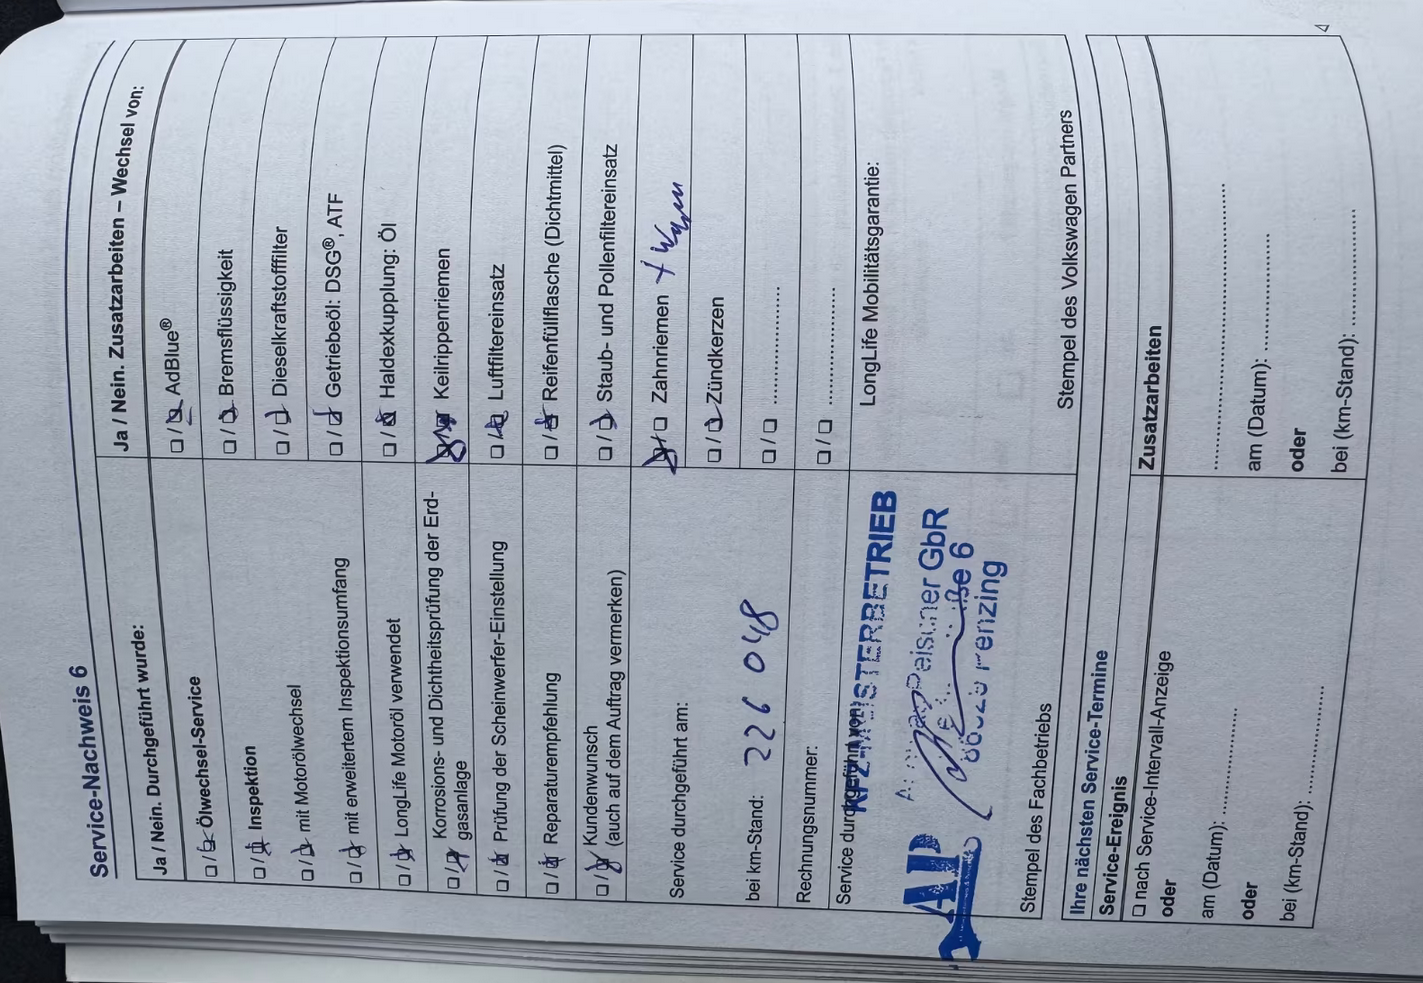 Service-Nachweis 6
Ja / Nein. Durchgeführt wurde:
Ölwechsel-Service
Inspektion
mit Motorölwechsel
mit erweitertem Inspektionsumfang
LongLife Motoröl verwendet
Korrosions- und Dichtheitsprüfung der Erd-
gasanlage
Prüfung der Scheinwerfer-Einstellung
Reparaturempfehlung
Kundenwunsch
(auch auf dem Auftrag vermerken)
Service durchgeführt am:
bei km-Stand: 226 048
Rechnungsnummer:
Service durchgeführt von:
KFZ-MEISTERBETRIEB
GbR
6
enzing
Stempel des Fachbetriebs
Ja / Nein. Zusatzarbeiten – Wechsel von:
AdBlue®
Bremsflüssigkeit
Dieselkraftstofffilter
Getriebeöl: DSG®, ATF
Haldexkupplung: Öl
Keilrippenriemen
Luftfiltereinsatz
Reifenfüllflasche (Dichtmittel)
Staub- und Pollenfiltereinsatz
Zahnriemen +
Zündkerzen
LongLife Mobilitätsgarantie:
Stempel des Volkswagen Partners
Ihre nächsten Service-Termine
Service-Ereignis
nach Service-Intervall-Anzeige
oder
am (Datum):
oder
bei (km-Stand):
Zusatzarbeiten
am (Datum):
oder
bei (km-Stand):